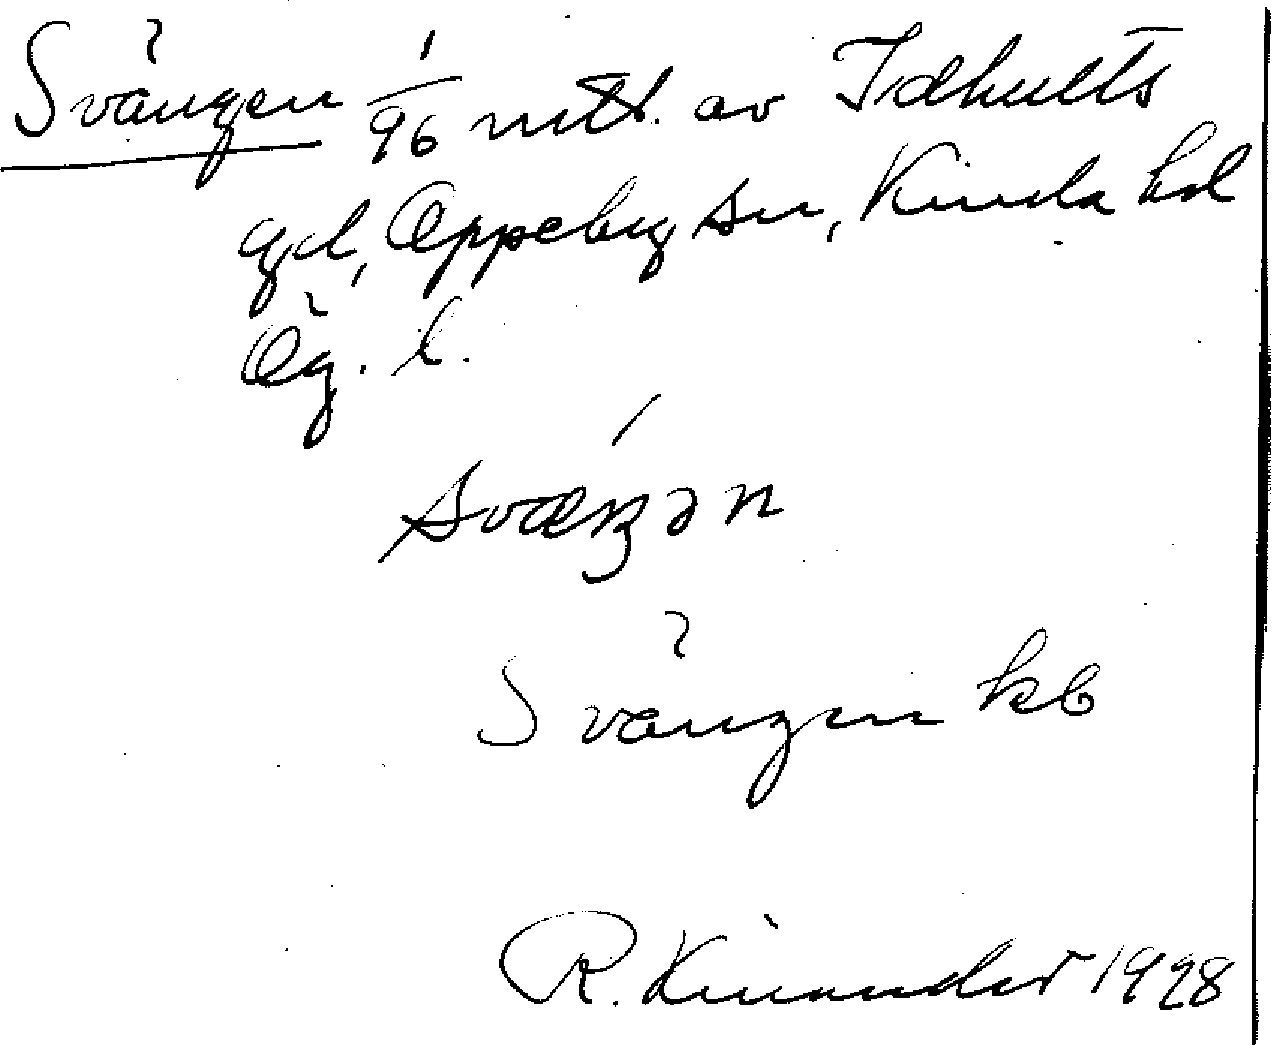 Svängen 1/96 mtl. av Idhults
gd, Oppeby sn, Kinda hd
Ög. l.
sväŋən
Svängen kb
R. Kinander 1928